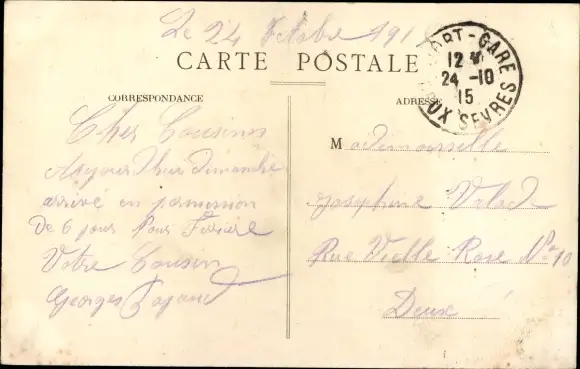 Le 24 Octobre 191
CARTE POSTALE
ORT-GARE
12
24 -10
15
UX SEVRES
CORRESPONDANCE
Cher Cousines
dimanche
arrivé en permission
De 6 jours Pour
Votre Cousin
Georges
ADRESSE
Mademoiselle
Josephine
Rue Vielle Rose No 10
Deux